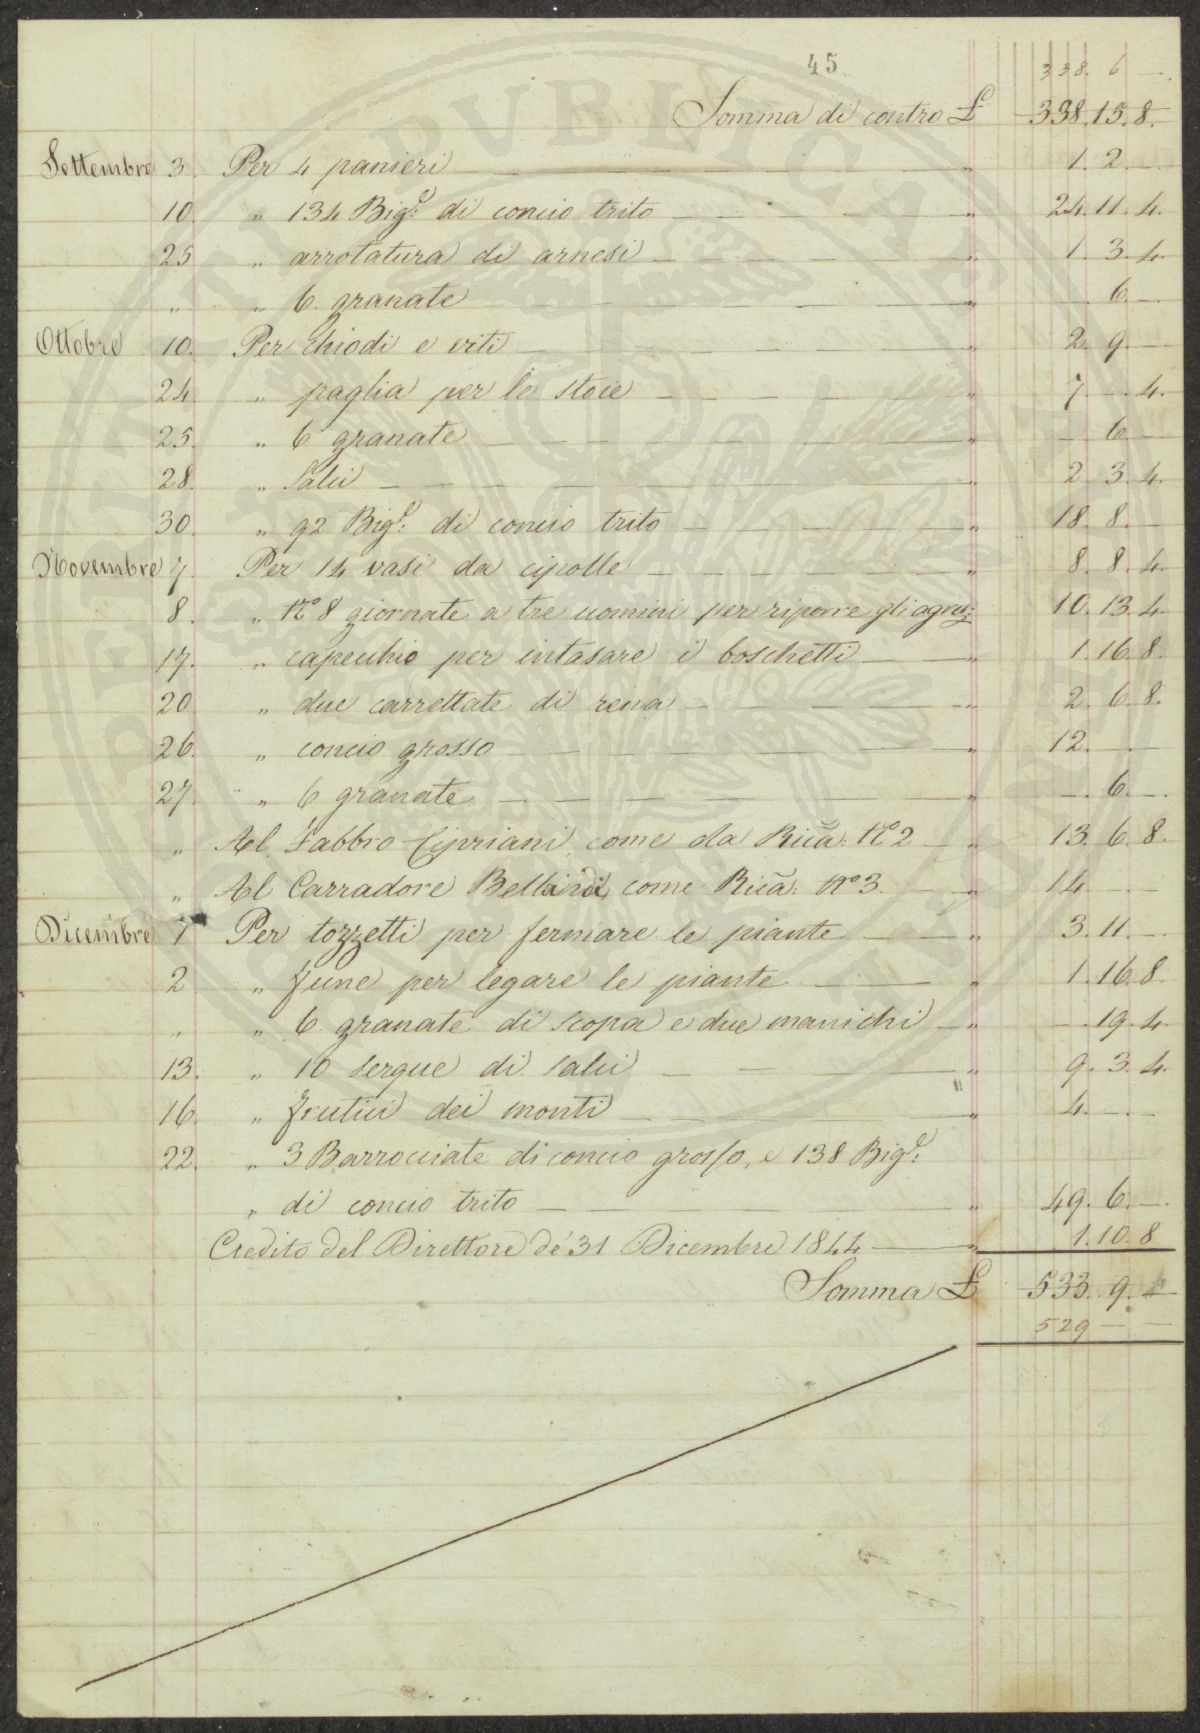 45
338. 6 —.
Somma di contro £ 338. 15. 8.
Settembre 3. Per 4 panieri — " 1. 2. —
10. " 134 Bigᵉ: di concio trito — " 24. 11. 4.
25 " arrotatura di arnesi — " 1. 3. 4.
" " 6. granate — " — 6. —
Ottobre 10. Per chiodi e viti — " 2. 9. —
24 " paglia per le stoie — " 7. — 4.
25. " 6 granate — " — 6 —
28. " Salci — " 2. 3. 4.
30. " 92 Bigᵉ: di concio trito — " 18. 8. —
Novembre 7. Per 14 vasi da cipolle — " 8. 8. 4.
8. " Nº 8 giornate a tre uomini per riporre gli agru: " 10. 13. 4
17. " capecchio per intasare i boschetti — " 1. 16. 8.
20 " due carrettate di rena — " 2. 6. 8.
26. " concio grosso — " 12. — —
27. " 6 granate — " —. 6. —.
" Al Fabbro Cipriani come da Ricã: Nº 2 — " 13. 6. 8.
" Al Carradore Bellandi, come Ricã: Nº 3. — " 14 — —
Dicembre 1 Per tozzetti per fermare le piante — " 3. 11. —.
2 " fune per legare le piante — " 1. 16. 8.
" " 6. granate di scopa e due manichi — " — 19. 4.
13. " 10 serque di salci — " 9. 3. 4.
16. " frutici dei monti — " 4. — —
22. " 3 Barrocciate di concio grosso, e 138 Bigᵉ:
" di concio trito — " 49. 6. —.
Credito del Direttore de' 31 Dicembre 1844 — " 1. 10. 8
Somma £ 533. 9. 4
529 — —